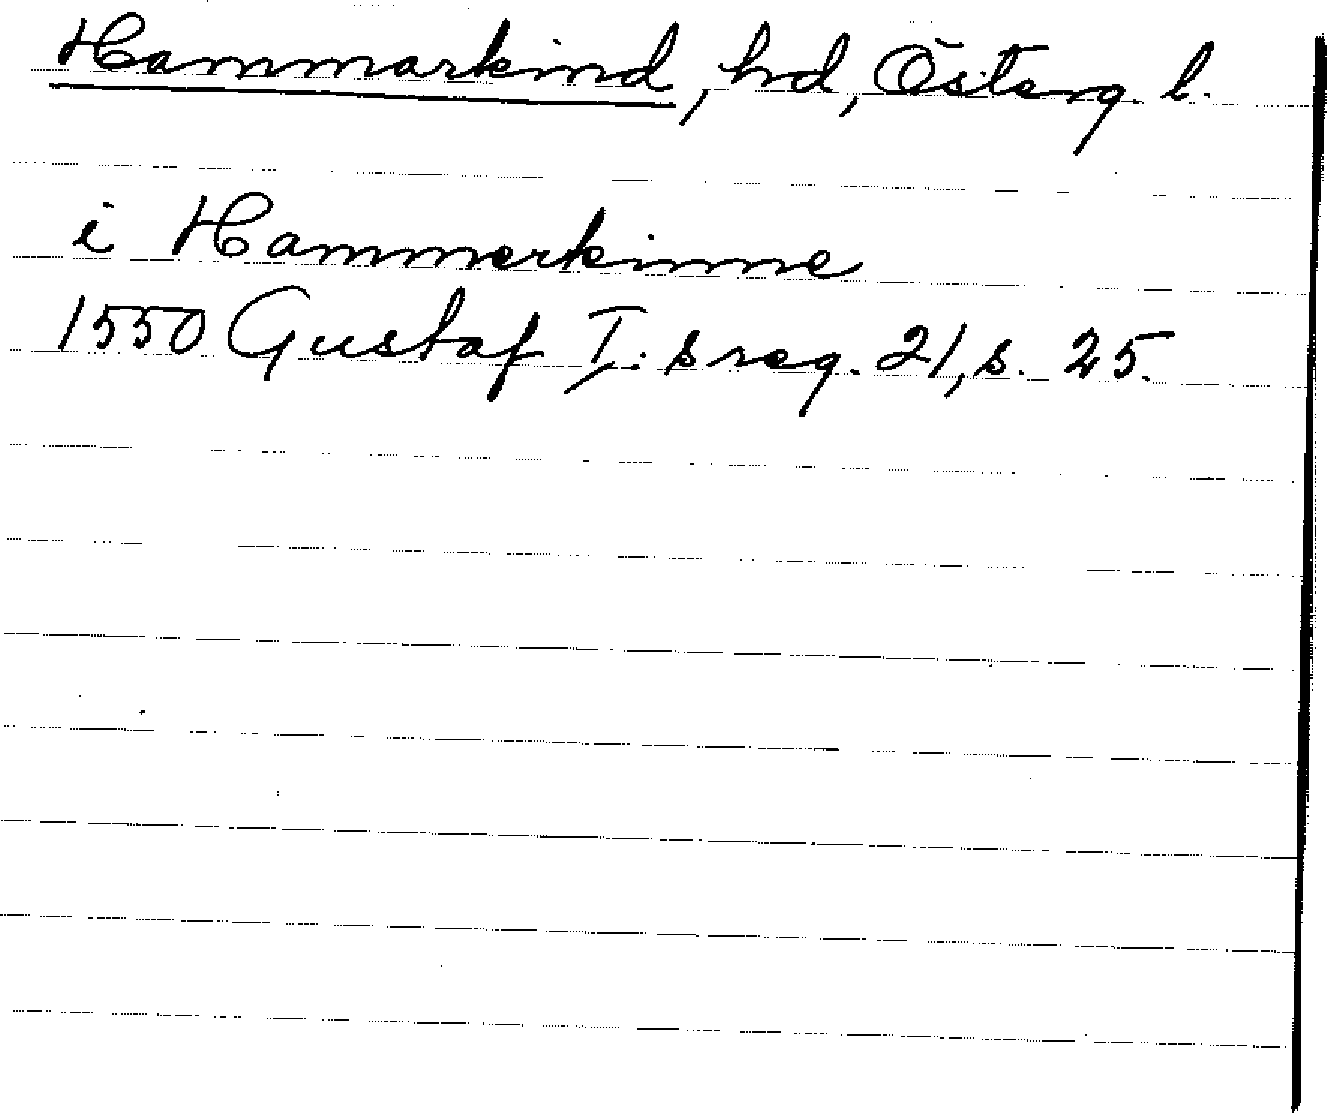 Hammarkind, hd, Österg. l.
i Hammerkinne
1550 Gustaf I:s reg. 21, s. 25.